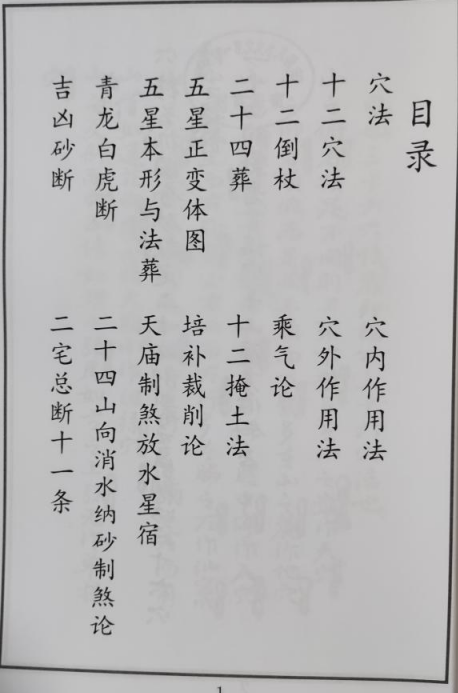 目录
穴法
穴内作用法
十二穴法
穴外作用法
十二倒杖
乘气论
二十四葬
十二掩土法
五星正变体图
培补裁削论
五星本形与法葬
天庙制煞放水星宿
青龙白虎断
二十四山向消水纳砂制煞论
吉凶砂断
二宅总断十一条
1